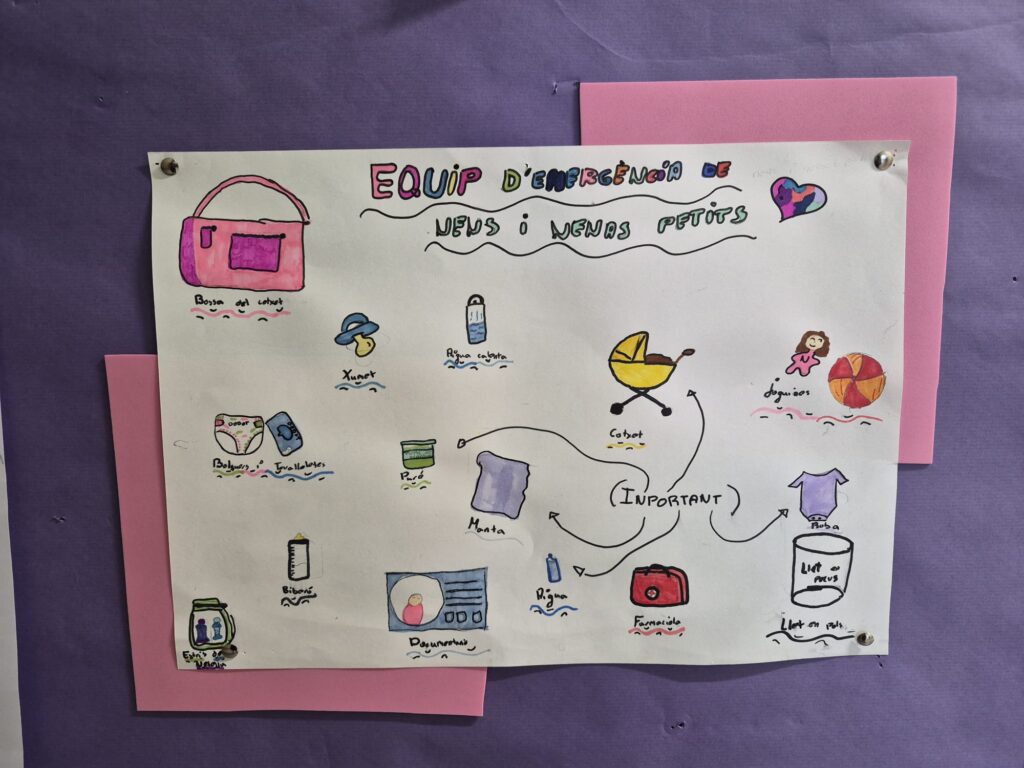 EQUIP D'EMERGÈNCIA DE
NENS i NENAS PETITS
Bossa del cotxet
Xumet
Aigua calenta
Cotxet
Joguines
Bolquers i Tovalloletes
Puré
Manta
(INPORTANT)
Roba
Biberó
Aigua
Farmaciola
Llet en
Llet en pols